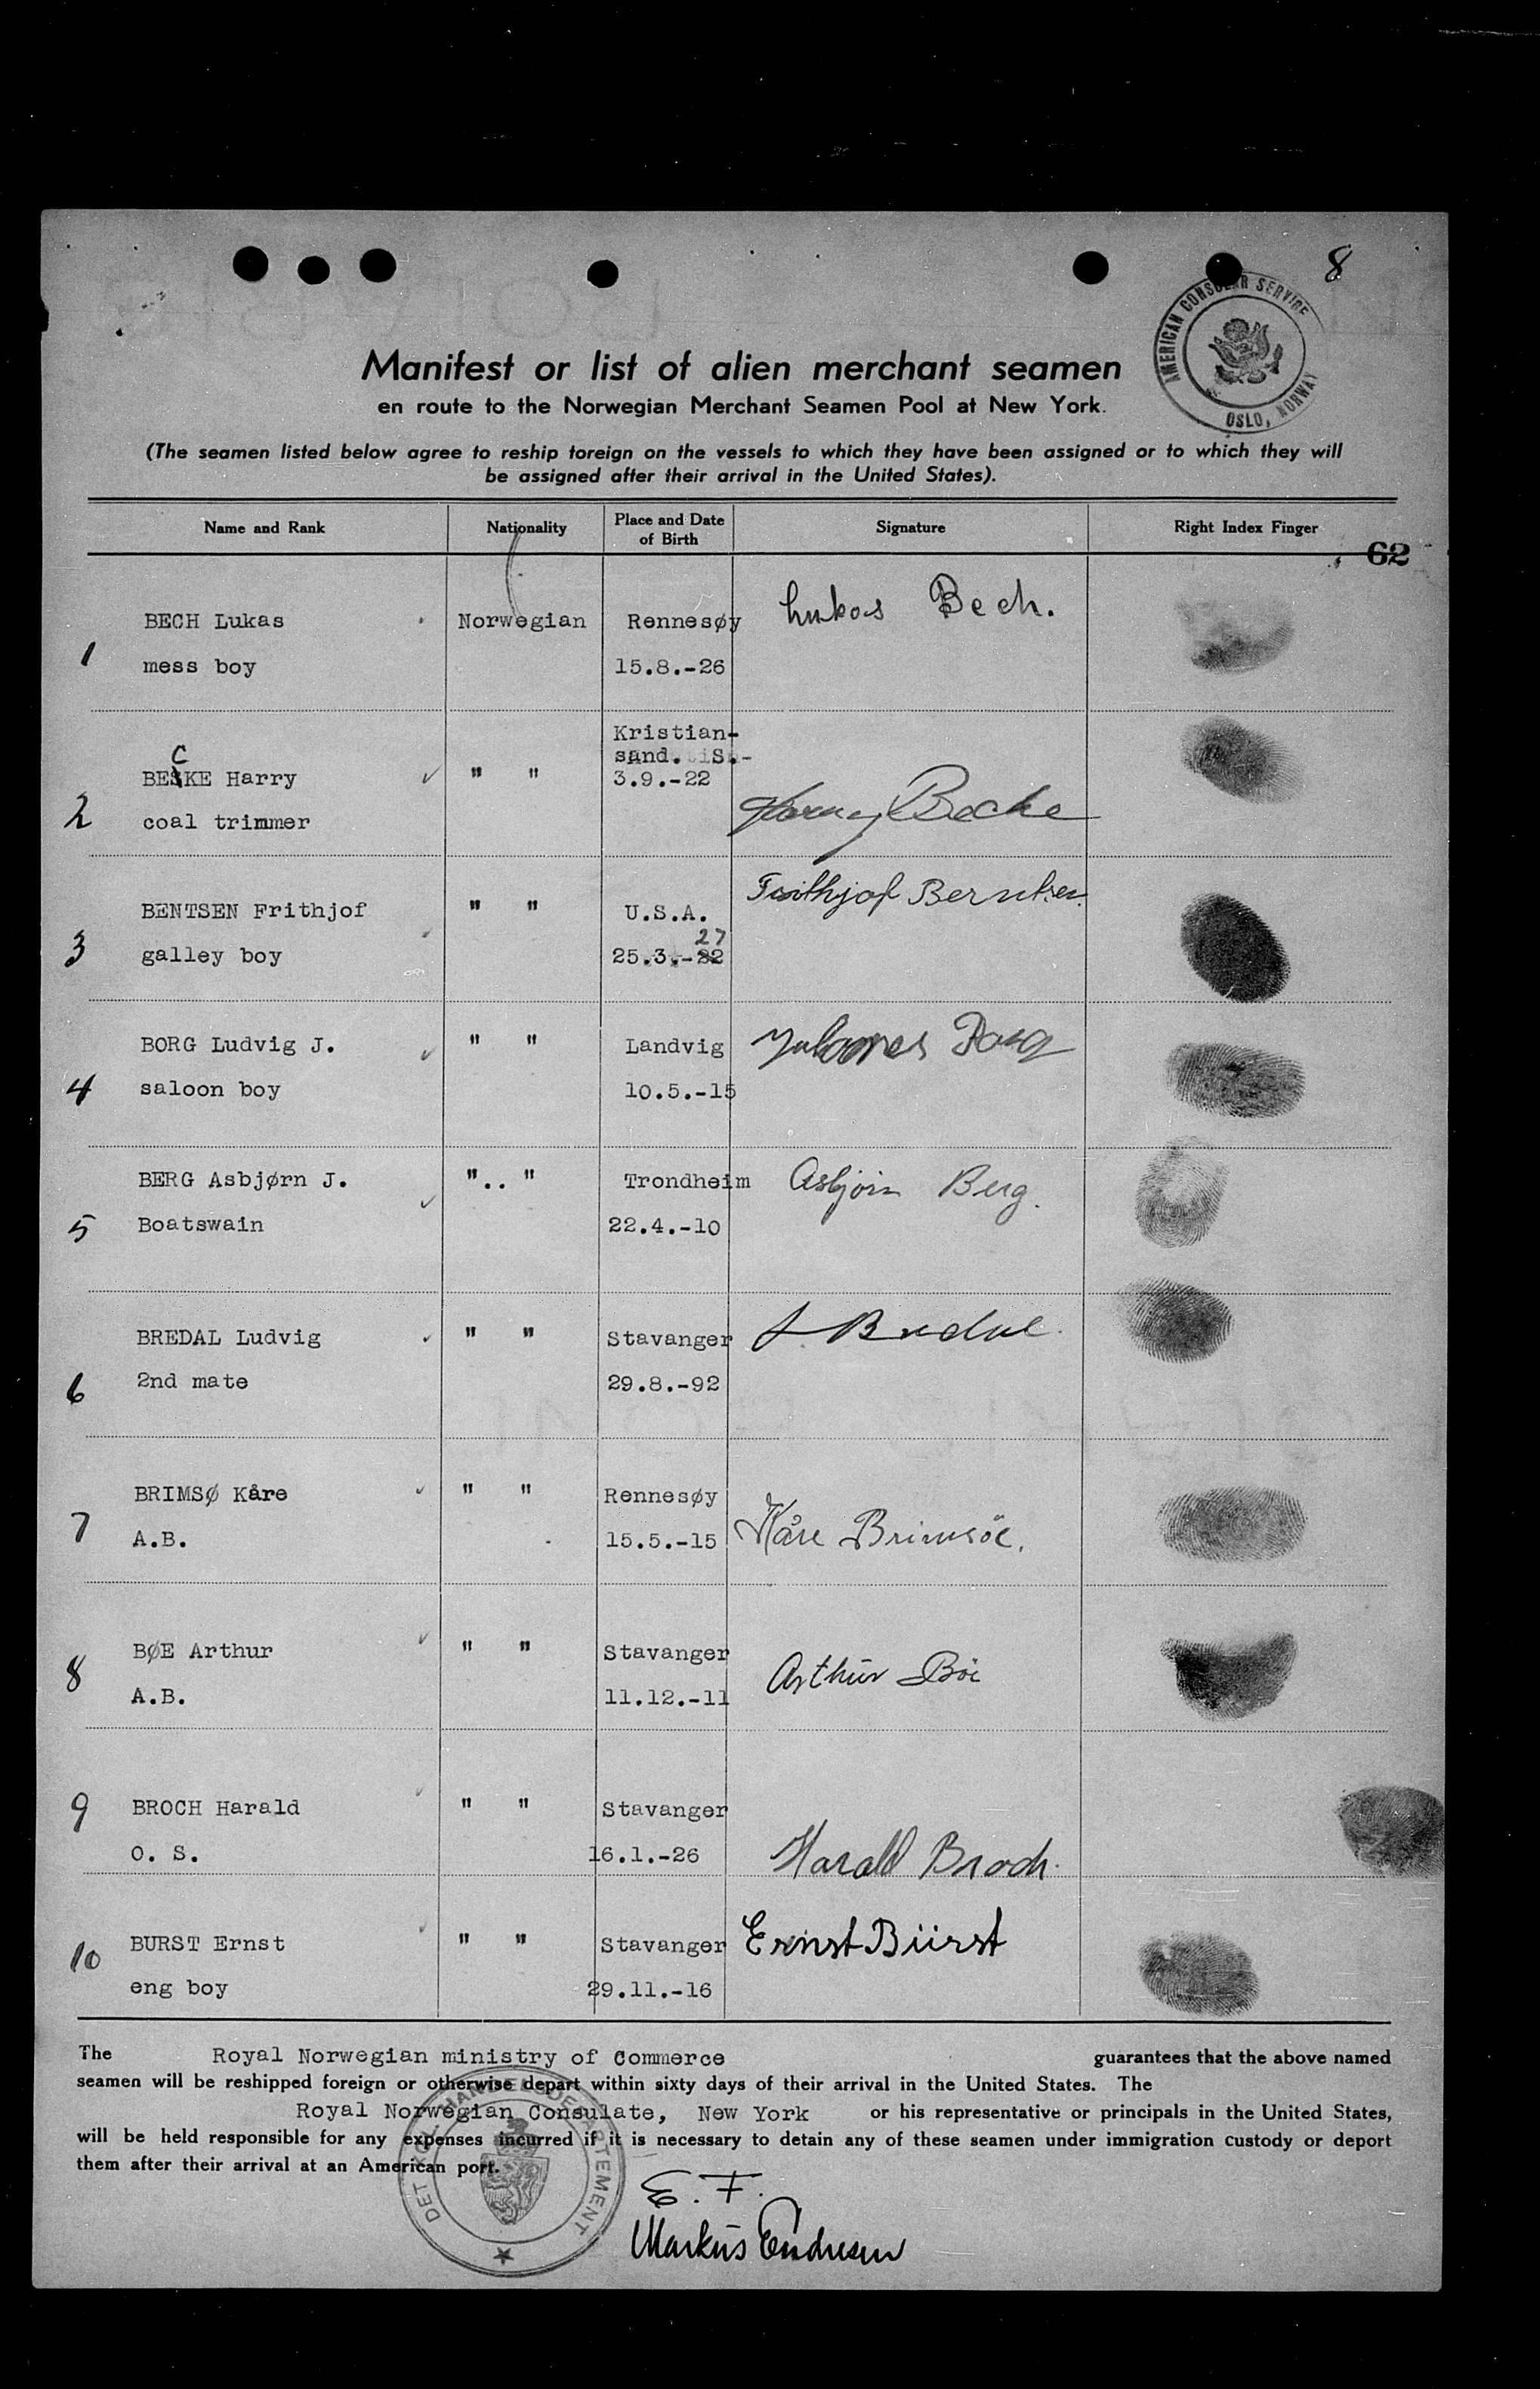 8
AMERICAN CONSULAR SERVICE
OSLO, NORWAY
Manifest or list of alien merchant seamen
en route to the Norwegian Merchant Seamen Pool at New York.
(The seamen listed below agree to reship foreign on the vessels to which they have been assigned or to which they will
be assigned after their arrival in the United States).
Name and Rank Nationality Place and Date of Birth Signature Right Index Finger
62
BECH Lukas Norwegian Rennesøy Lukas Bech.
1 mess boy 15.8.-26
Kristian-
sand. S.
C
BESKE Harry " " 3.9.-22
2 coal trimmer Harry Becke
BENTSEN Frithjof " " U.S.A. Frithjof Berntsen.
27
3 galley boy 25.3.-22
BORG Ludvig J. " " Landvig
4 saloon boy 10.5.-15
BERG Asbjørn J. ".. " Trondheim Asbjörn Berg.
5 Boatswain 22.4.-10
BREDAL Ludvig " " Stavanger L Bredal.
6 2nd mate 29.8.-92
BRIMSØ Kåre " " Rennesøy
7 A.B. 15.5.-15 Kåre Brimsöe.
BØE Arthur " " Stavanger
8 A.B. 11.12.-11 Arthur Böe
9 BROCH Harald " " Stavanger
O. S. 16.1.-26 Harald Broch.
BURST Ernst " " Stavanger Ernst Bürst
10 eng boy 29.11.-16
The Royal Norwegian ministry of Commerce guarantees that the above named
seamen will be reshipped foreign or otherwise depart within sixty days of their arrival in the United States. The
Royal Norwegian Consulate, New York or his representative or principals in the United States,
will be held responsible for any expenses incurred if it is necessary to detain any of these seamen under immigration custody or deport
them after their arrival at an American port.
DET KGL. HANDELSDEPARTEMENT
E. F.
Markus Endresen